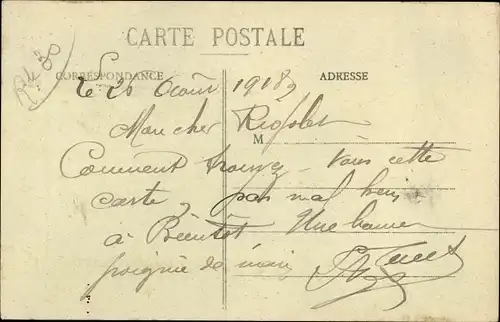 CARTE POSTALE
CORRESPONDANCE
ADRESSE
Le 20 Août 1918
Mon cher Rigolet
M
Comment trouvez-vous cette
carte, pas mal hein
à Bientôt Une bonne
poignée de main